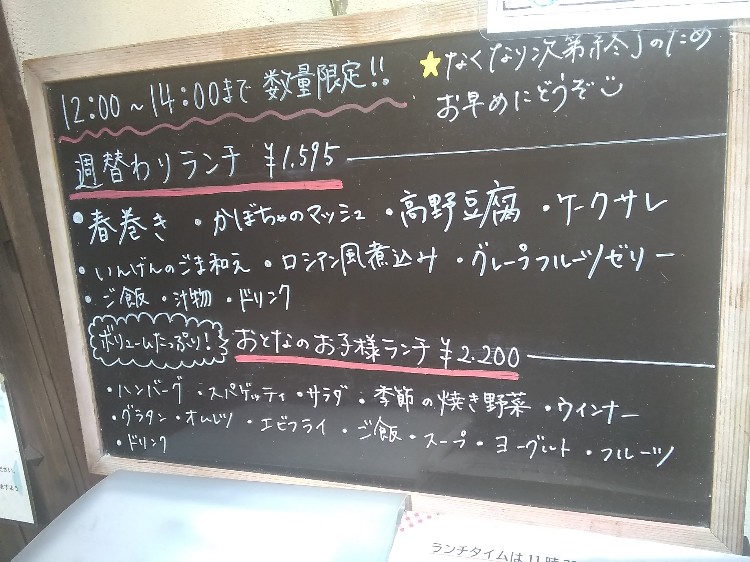 12:00～14:00まで 数量限定!!
★なくなり次第終了のため
お早めにどうぞ
週替わりランチ ¥1.595
・春巻き ・かぼちゃのマッシュ ・高野豆腐 ・ケークサレ
・いんげんのごま和え ・ロシアン風煮込み ・グレープフルーツゼリー
・ご飯 ・汁物 ・ドリンク
ボリュームたっぷり! おとなのお子様ランチ ¥2.200
・ハンバーグ ・スパゲッティ ・サラダ ・季節の焼き野菜 ・ウインナー
・グラタン ・オムレツ ・エビフライ ・ご飯 ・スープ ・ヨーグルト ・フルーツ
・ドリンク
ランチタイムは11時